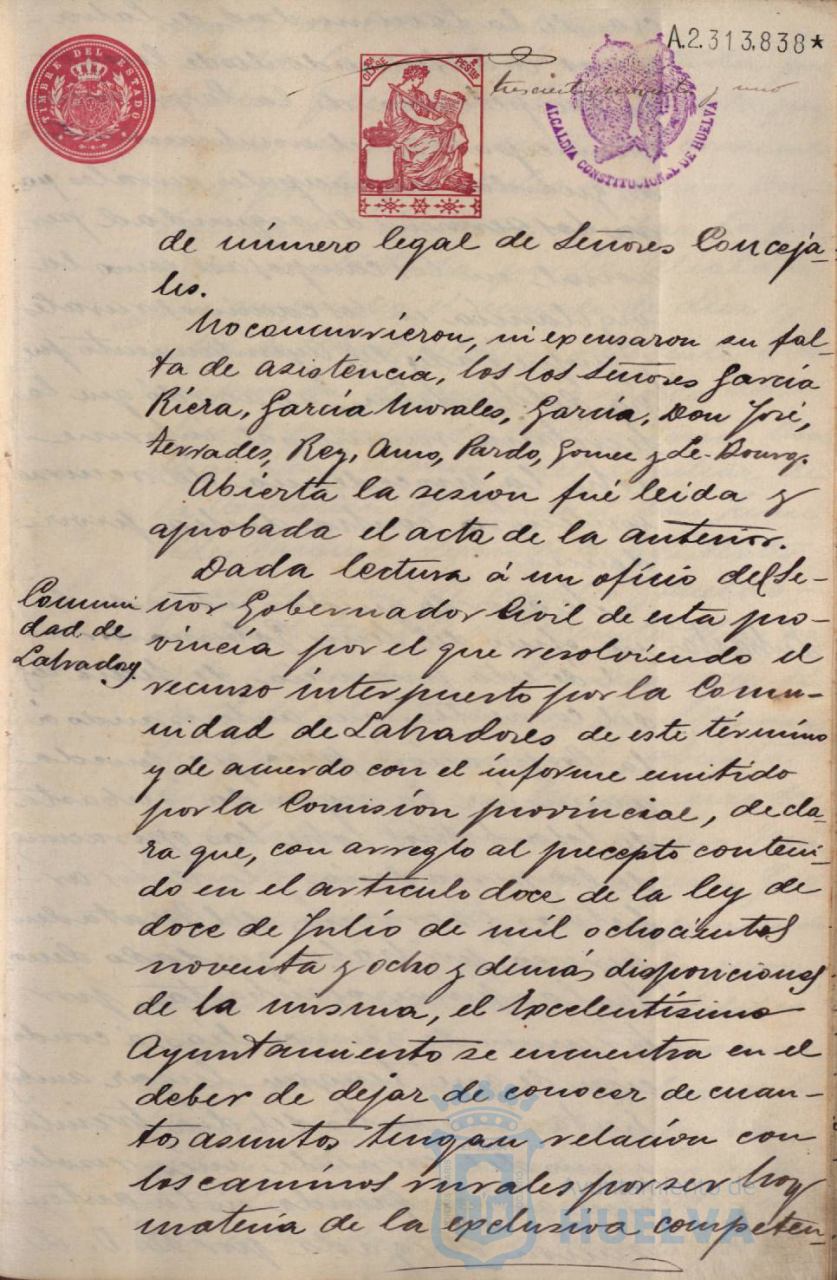 A.2.313.838*
TIMBRE DEL ESTADO
CLASE
PESETAS
trescientos noventa y uno
ALCALDIA CONSTITUCIONAL DE HUELVA
de número legal de Señores Conceja-
les.
No concurrieron, ni expensaron su fal-
ta de asistencia, los los Señores García
Riera, García Morales, García, Don José,
Terrades, Rey, Amo, Pardo, Gomez y Le-Bourg.
Abierta la sesión fué leida y
aprobada el acta de la anterior.
Comuni
dad de
Labradores
Dada lectura á un oficio del Se-
ñor Gobernador Civil de esta pro-
vincia por el que resolviendo el
recurso interpuesto por la Comu-
nidad de Labradores de este término
y de acuerdo con el informe emitido
por la Comisión provincial, decla-
ra que, con arreglo al precepto conteni-
do en el artículo doce de la ley de
doce de Julio de mil ochocientos
noventa y ocho y demás disposiciones
de la misma, el Excelentísimo
Ayuntamiento se encuentra en el
deber de dejar de conocer de cuan-
tos asuntos tengan relación con
los caminos rurales por ser hoy
materia de la exclusiva competen-
Ayuntamiento de
HUELVA